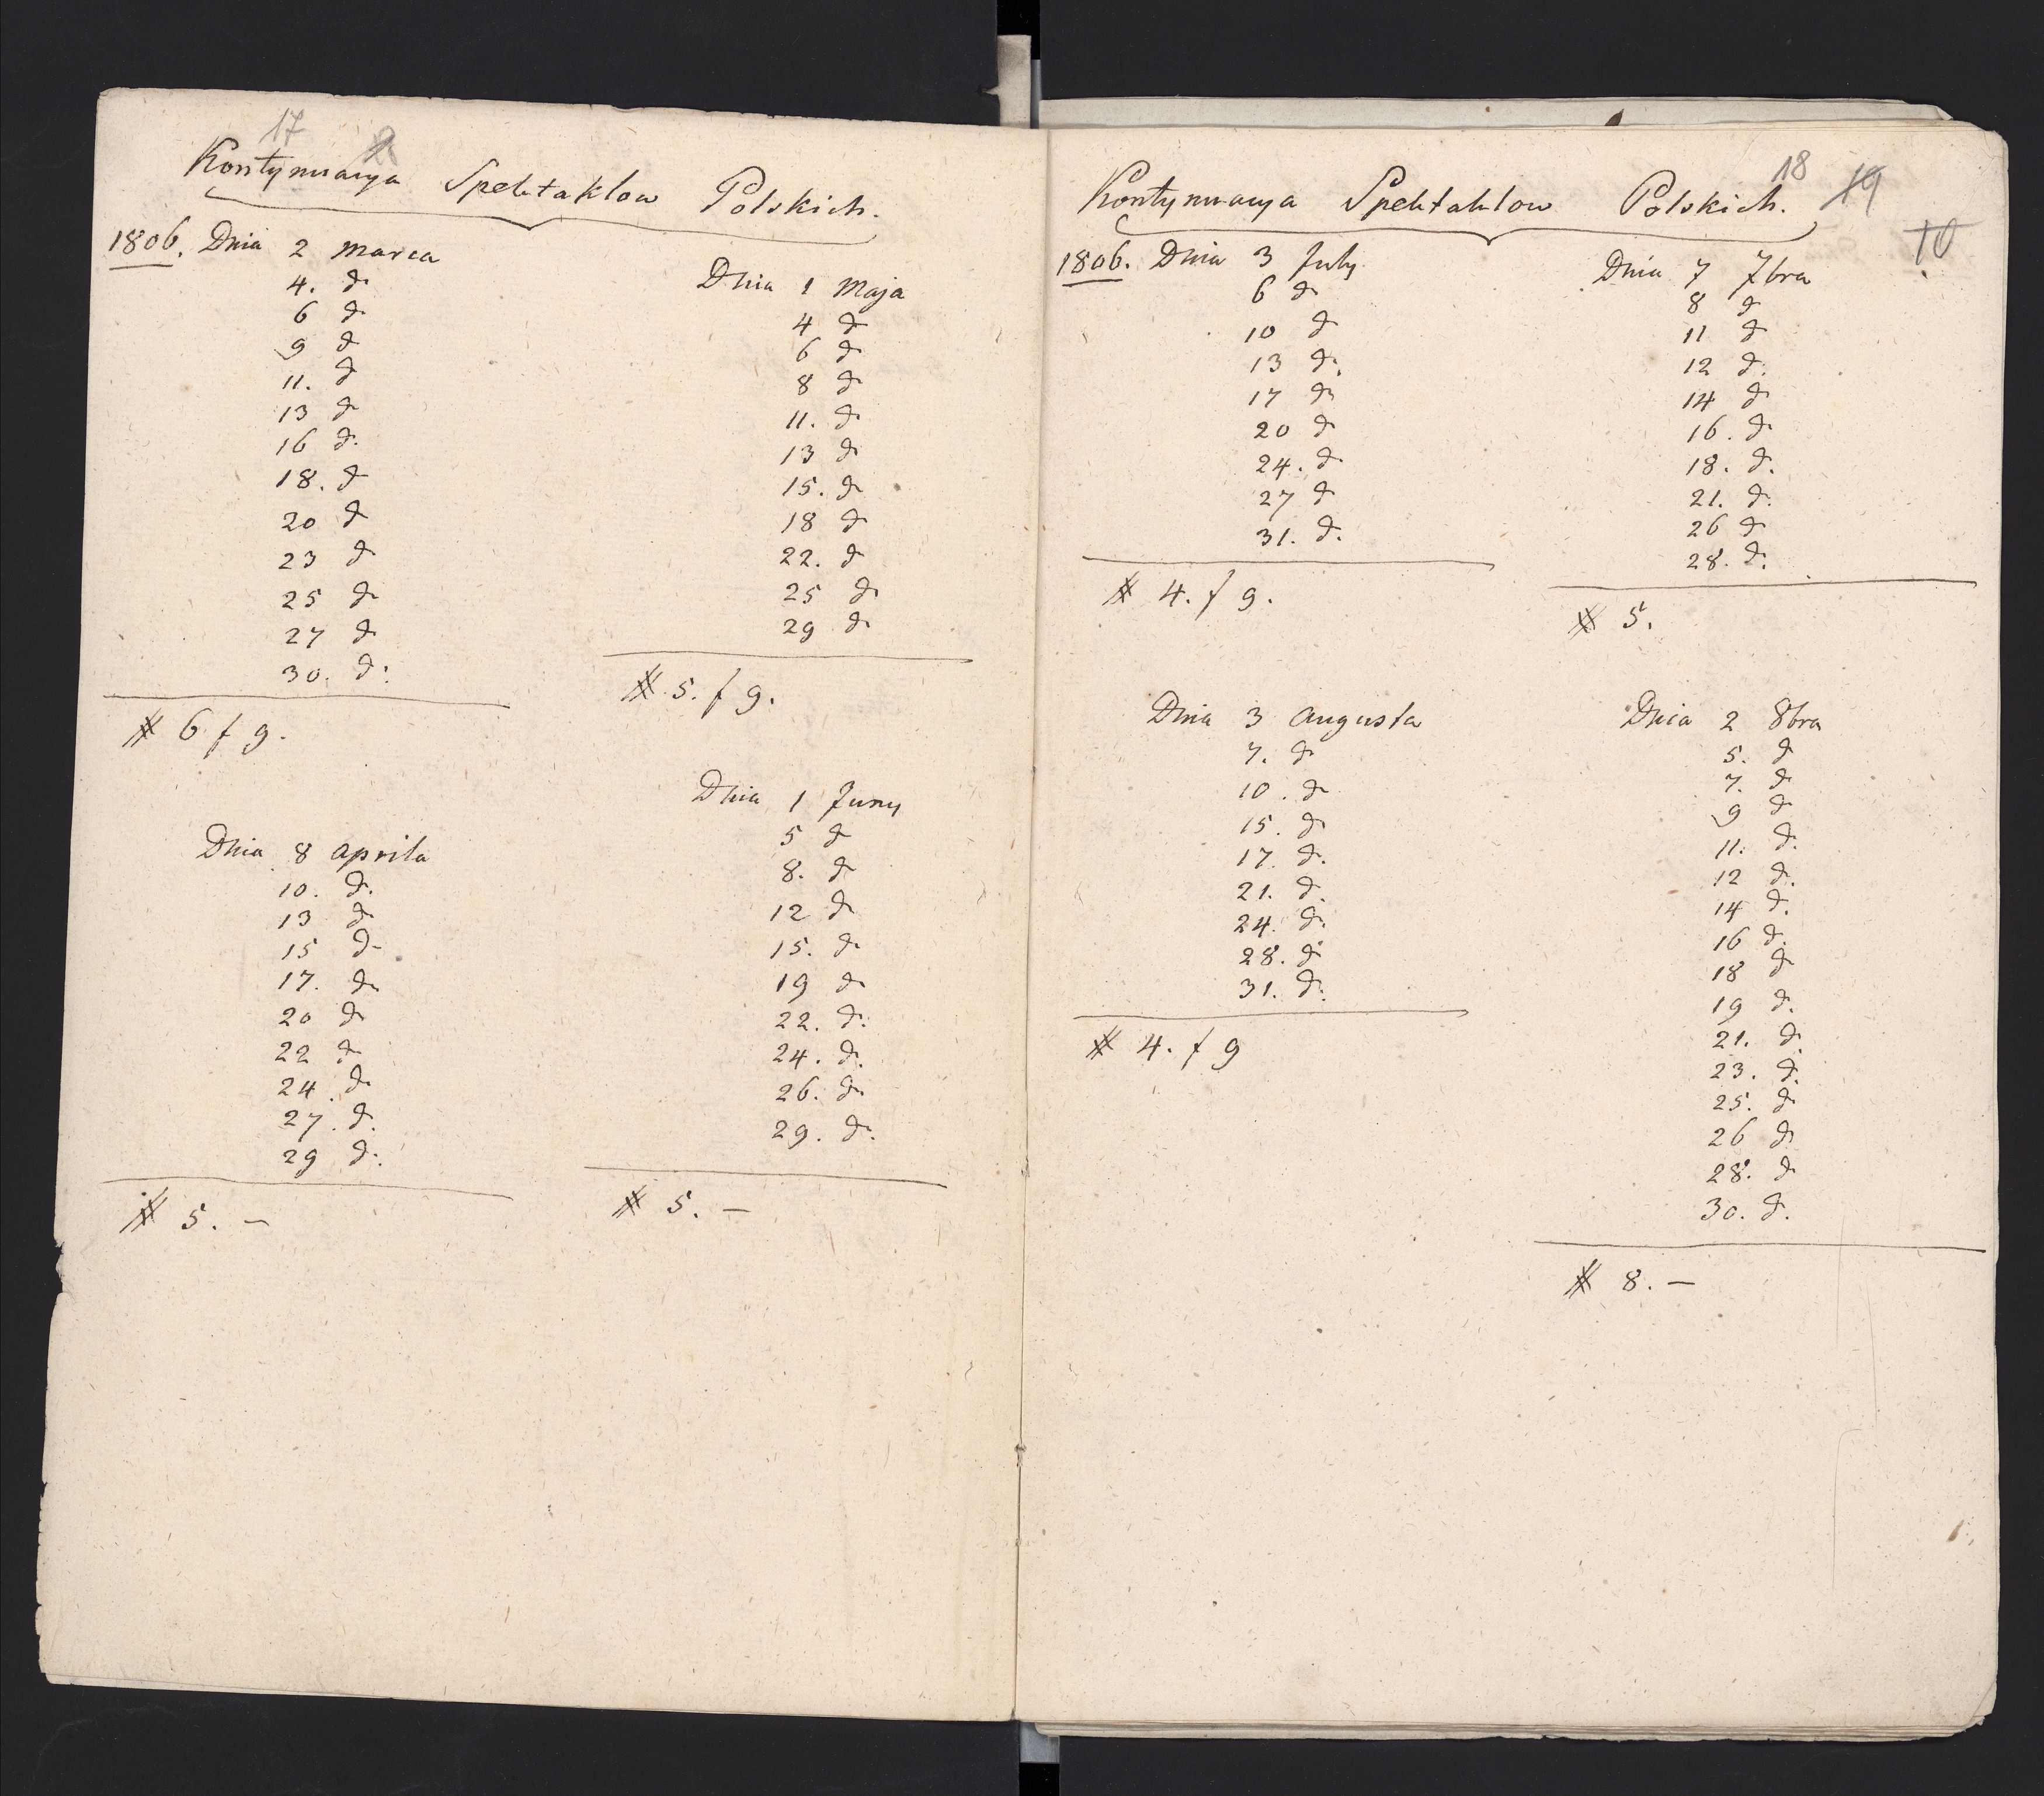 17
Kontynuacya Spektaklow Polskich.
1806. Dnia 2 Marca
4. d
6 d
9 d
11. d
13 d
16 d.
18. d
20 d
23 d
25 d
27 d
30. d:
# 6 f 9.
Dnia 8 aprila
10. d.
13 d
15 d
17. d
20 d
22 d
24. d
27. d.
29 d:
# 5. —
Dnia 1 Maja
4 d
6 d
8 d
11. d
13 d
15. d
18 d
22. d
25 d
29 d
# 5. f 9.
Dnia 1 Juny
5 d
8. d
12 d
15. d
19 d
22. d:
24. d.
26. d
29. d.
# 5. —
18 19
10
Kontynuacya Spektaklow Polskich.
1806. Dnia 3 July
6 d
10 d
13 d.
17 d
20 d
24. d
27 d
31. d.
# 4. f 9.
Dnia 3 augusta
7. d
10. d
15. d
17. d.
21. d.
24. d.
28. d
31. d.
# 4. f 9
Dnia 7 7bra
8 d
11 d
12 d.
14 d
16. d
18. d.
21. d.
26 d
28. d.
# 5.
Dnia 2 8bra
5. d
7. d
9 d
11. d.
12 d.
14 d.
16 d.
18 d
19 d.
21. d.
23. d.
25. d
26 d
28. d
30. d.
# 8. —